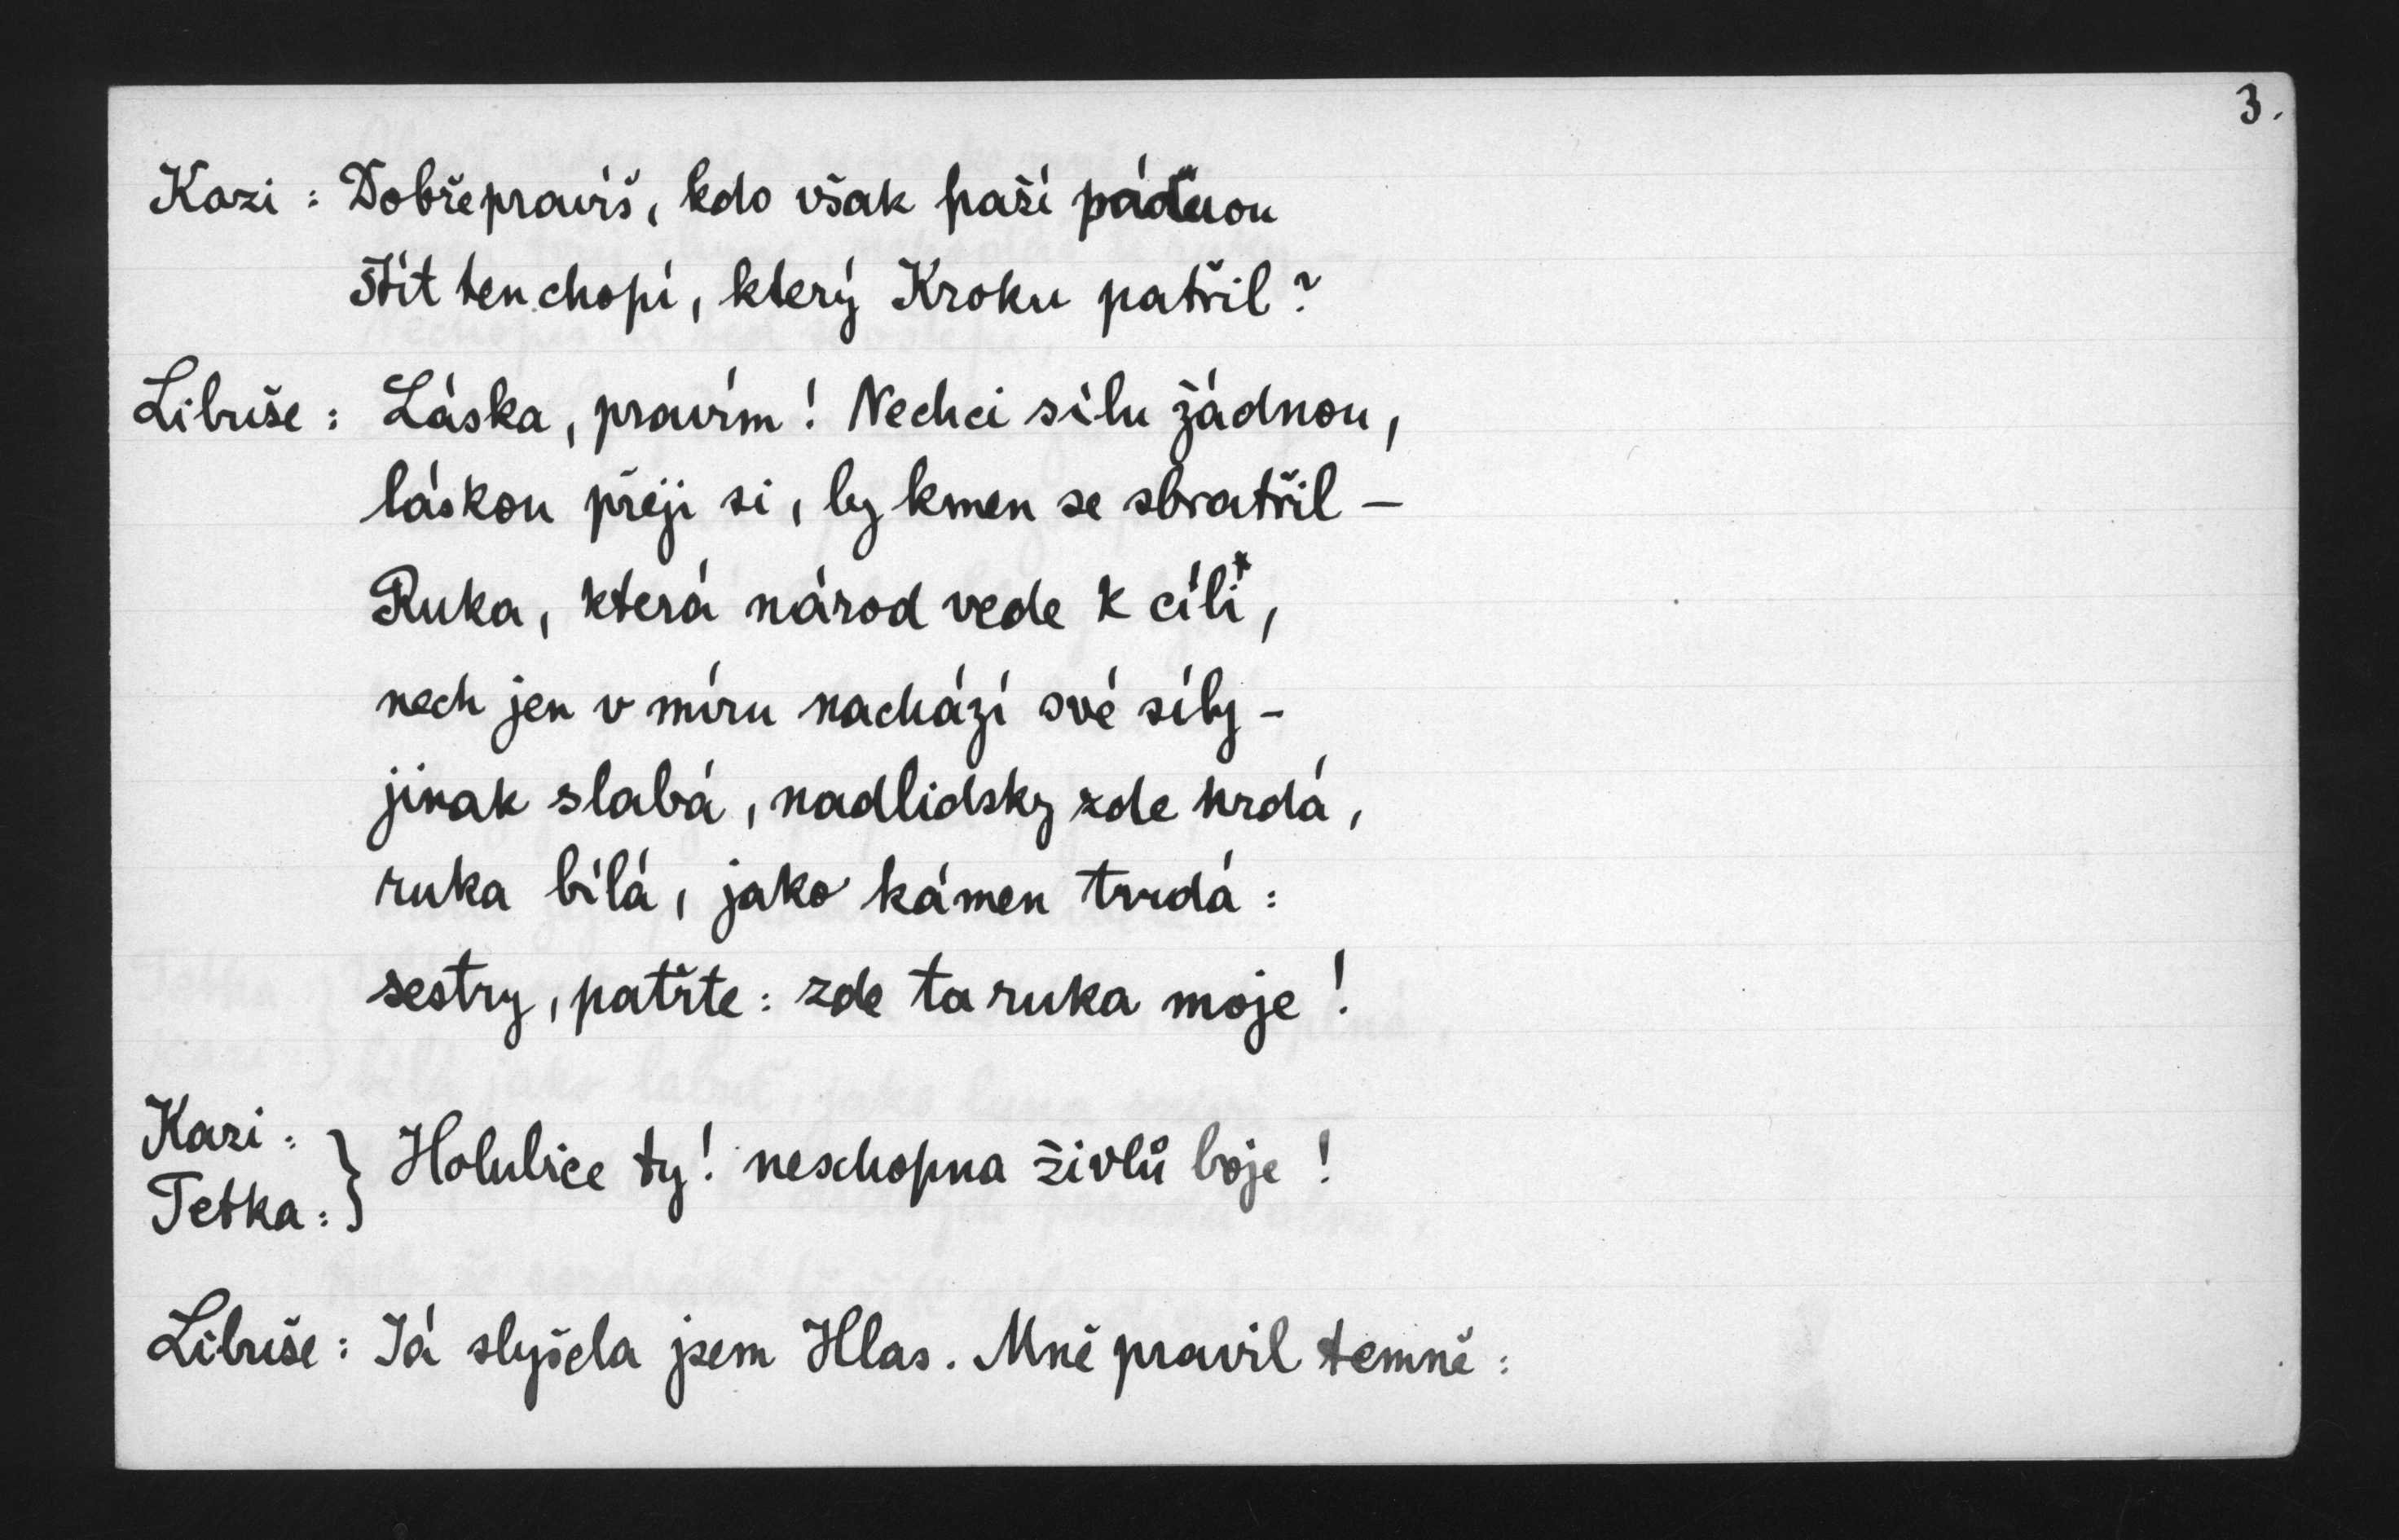 3.
Kazi: Dobře pravíš, kdo však paží pádnou
štít ten chopí, který Kroku patřil?
Libuše: Láska, pravím! Nechci sílu žádnou,
láskou přeji si, by kmen se sbratřil –
Ruka, která národ vede k cíli,
nech jen v míru nachází své síly –
jinak slabá, nadlidsky zde hrdá,
ruka bílá, jako kámen tvrdá:
sestry, patřte: zde ta ruka moje!
Kazi:
Tetka: } Holubice ty! neschopna živlů boje!
Libuše: Já slyšela jsem Hlas. Mně pravil temně: